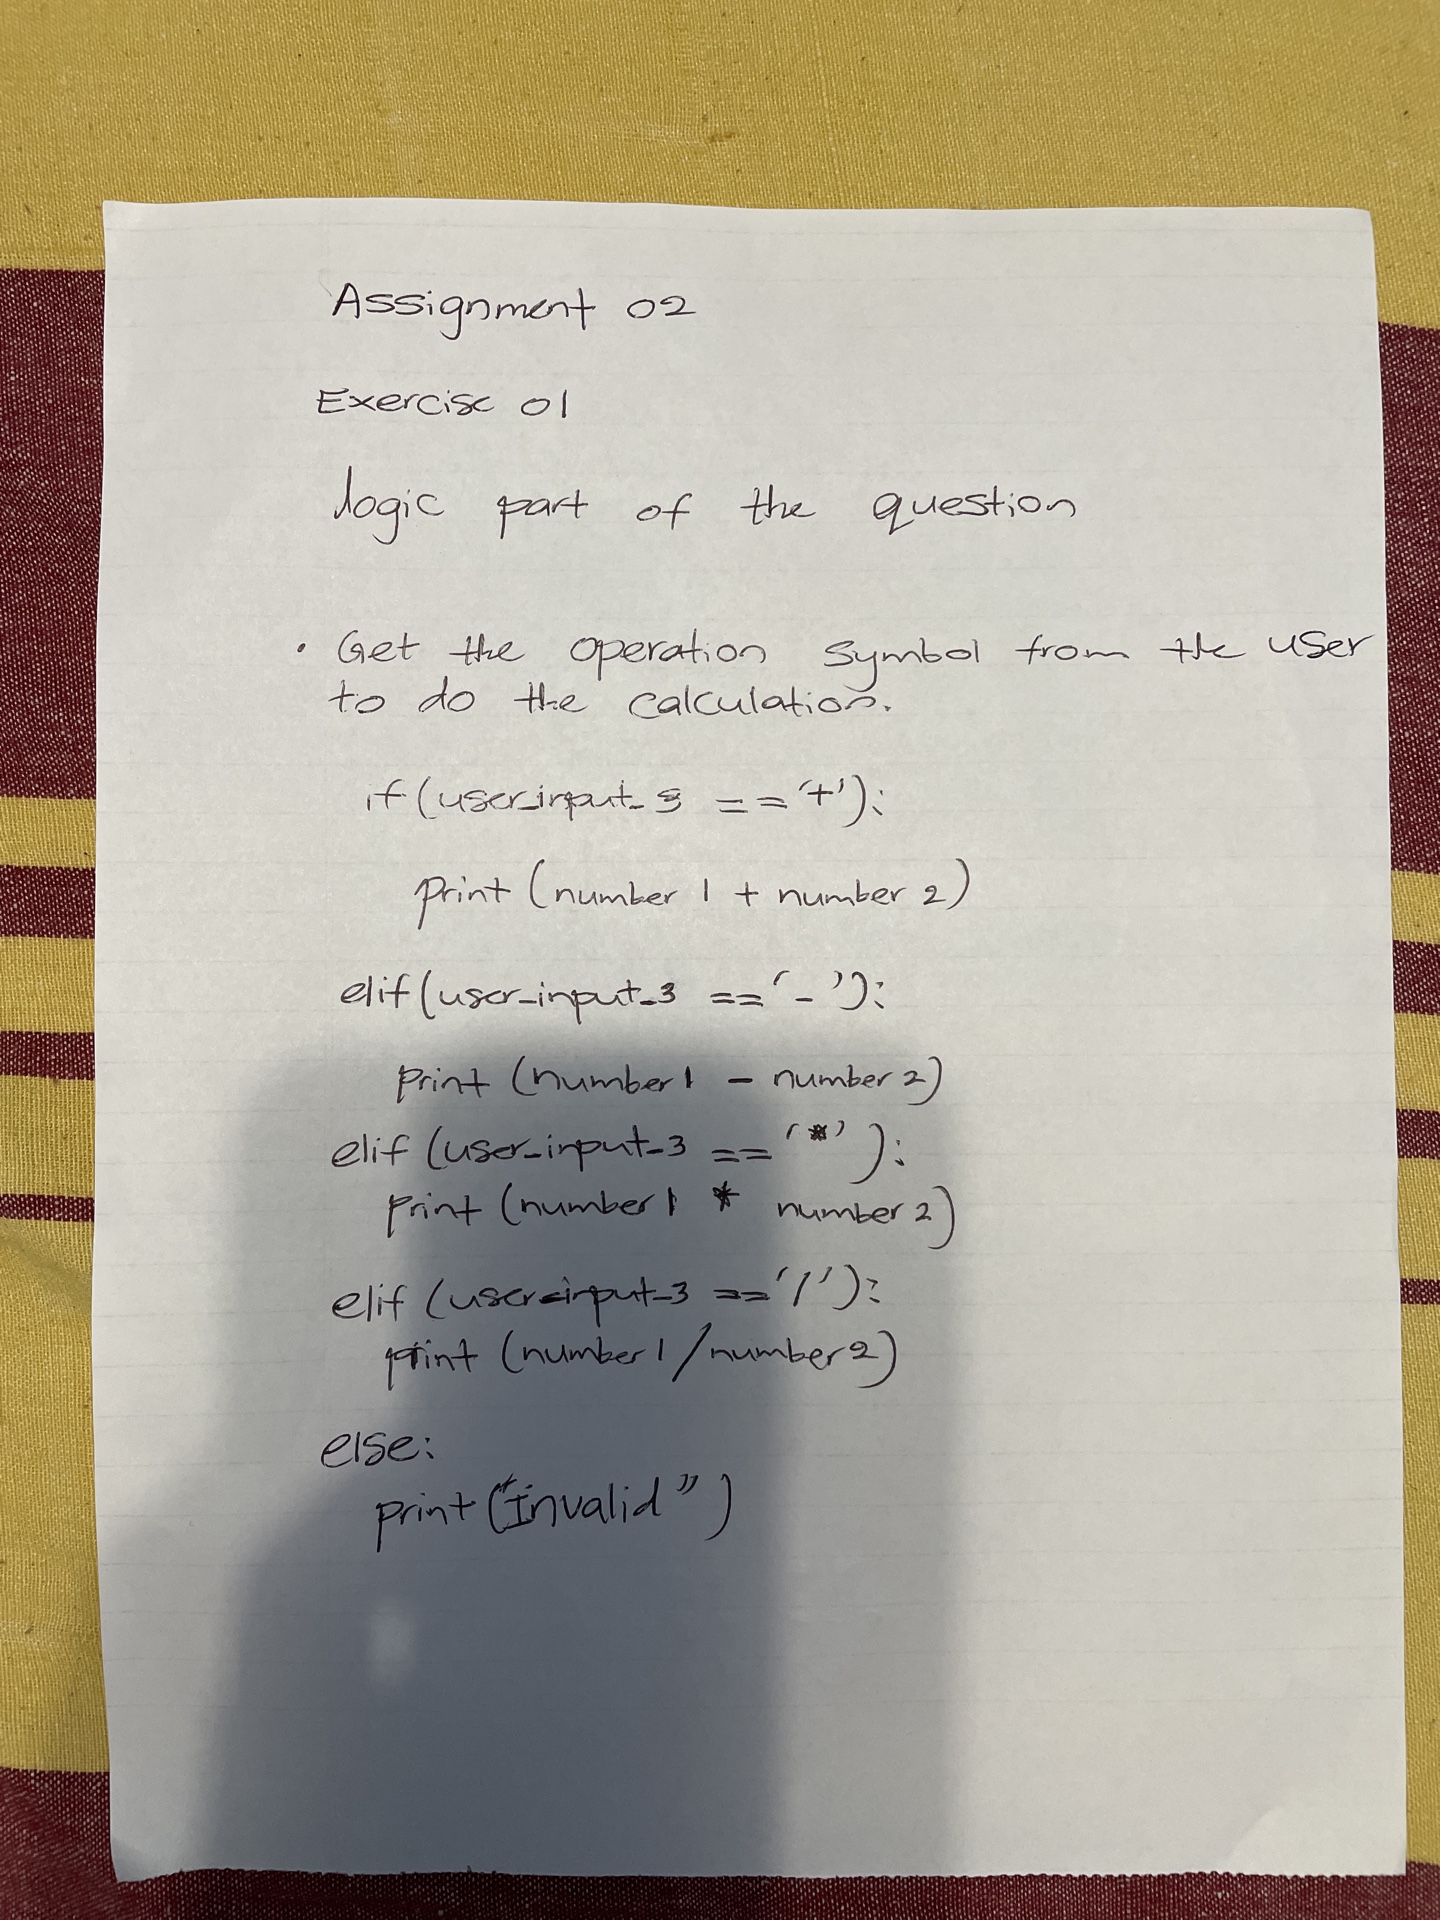 Assignment 02
Exercise 01
logic part of the question
• Get the operation symbol from the user
to do the calculation.
if (user_input_3 == '+'):
print (number 1 + number 2)
elif (user_input_3 == '-'):
print (number 1 - number 2)
elif (user_input_3 == '*'):
print (number 1 * number 2)
elif (user_input_3 == '/'):
print (number 1 / number 2)
else:
print ("Invalid")